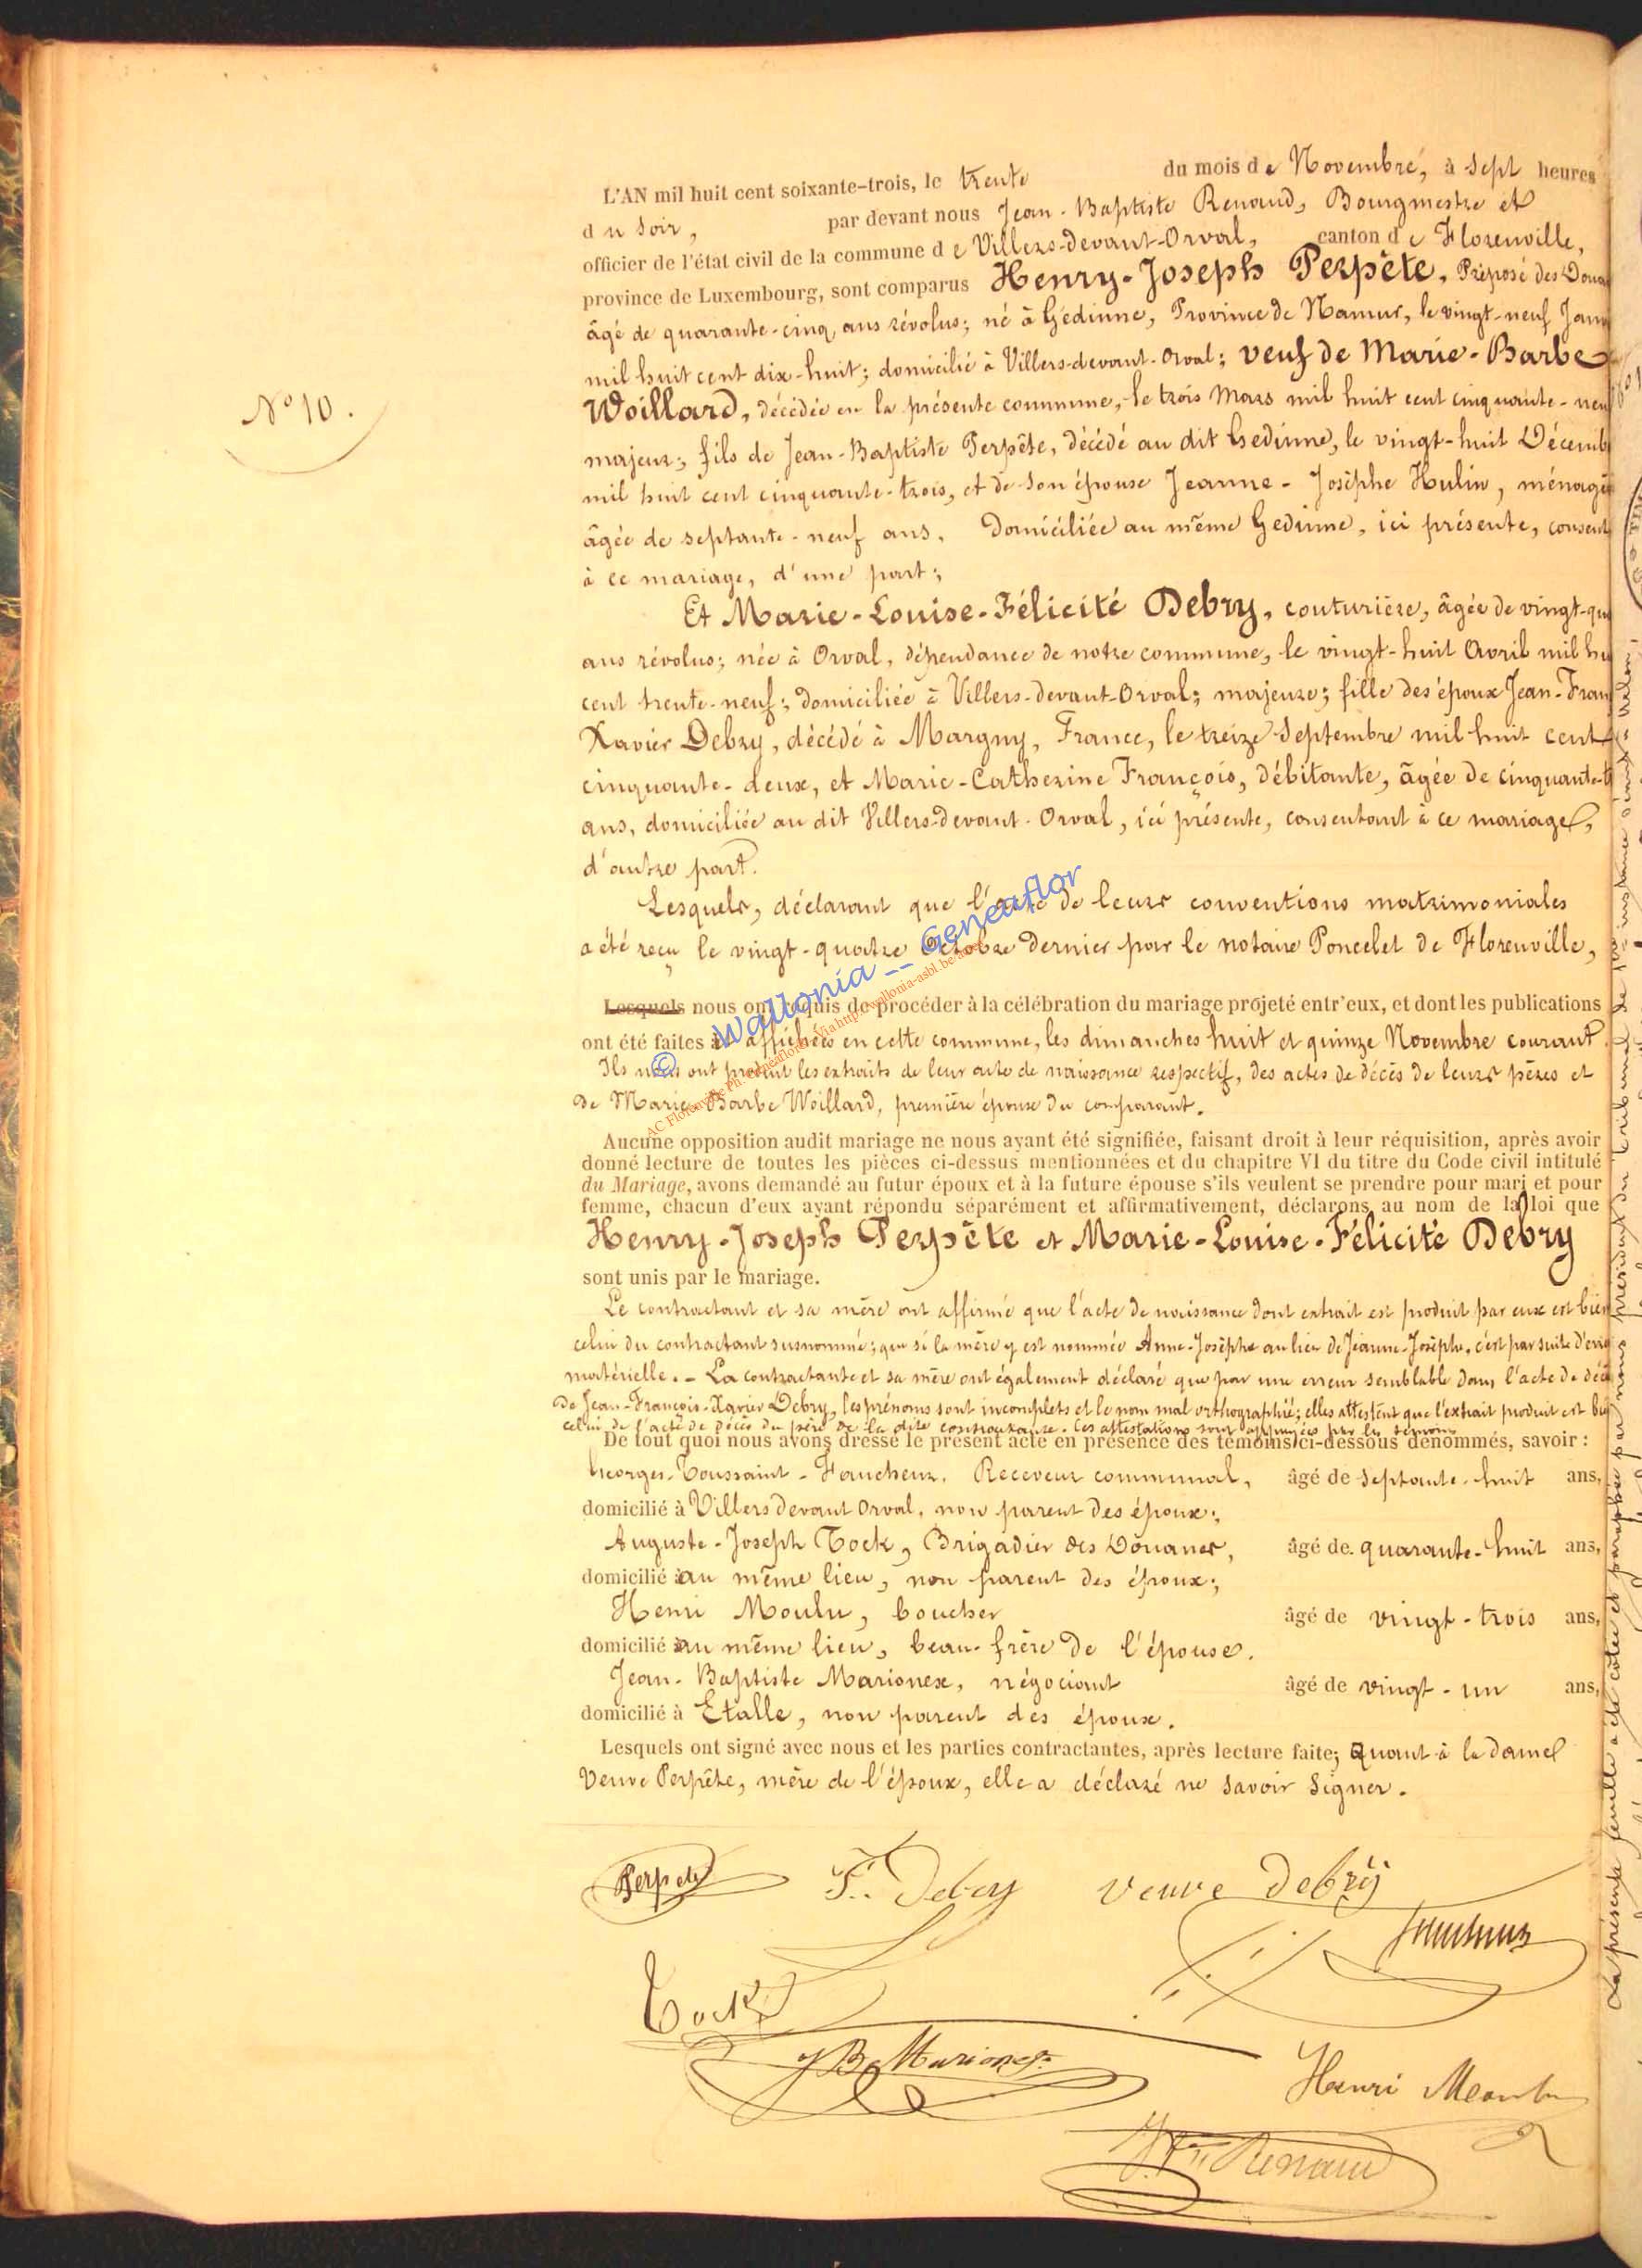 N° 10.
L'AN mil huit cent soixante-trois, le trente du mois de Novembre, à sept heures
du soir, par devant nous Jean-Baptiste Renaud, Bourgmestre et
officier de l'état civil de la commune de Villers-devant-Orval, canton de Florenville,
province de Luxembourg, sont comparus Henry-Joseph Perpète, Préposé des Doua
âgé de quarante-cinq ans révolus; né à Gedinne, Province de Namur, le vingt-neuf Janv
mil huit cent dix-huit; domicilié à Villers-devant-Orval; veuf de Marie-Barbe
Woillard, décédée en la présente commune, le trois Mars mil huit cent cinquante-neu
majeur; fils de Jean-Baptiste Perpète, décédé au dit Gedinne, le vingt-huit Décemb
mil huit cent cinquante-trois, et de son épouse Jeanne-Josèphe Hulin, ménagè
âgée de septante-neuf ans, domiciliée au même Gedinne, ici présente, consent
à ce mariage, d'une part;
Et Marie-Louise-Félicité Debry, couturière, âgée de vingt-qu
ans révolus; née à Orval, dépendance de notre commune, le vingt-huit Avril mil hu
cent trente-neuf; domiciliée à Villers-devant-Orval; majeure; fille des époux Jean-Fran
Xavier Debry, décédé à Margny, France, le treize Septembre mil huit cent
cinquante-deux, et Marie-Catherine François, débitante, âgée de cinquante-t
ans, domiciliée au dit Villers-devant-Orval, ici présente, consentant à ce mariage,
d'autre part.
Lesquels, déclarant que l'acte de leurs conventions matrimoniales
a été reçu le vingt-quatre Octobre dernier par le notaire Poncelet de Florenville,
Lesquels nous ont requis de procéder à la célébration du mariage projeté entr'eux, et dont les publications
ont été faites et affichées en cette commune, les dimanches huit et quinze Novembre courant.
Ils nous ont produit les extraits de leur acte de naissance respectif, des actes de décès de leurs pères et
de Marie-Barbe Woillard, première épouse du comparant.
© Wallonia __ Geneaflor
Aucune opposition audit mariage ne nous ayant été signifiée, faisant droit à leur réquisition, après avoir
donné lecture de toutes les pièces ci-dessus mentionnées et du chapitre VI du titre du Code civil intitulé
du Mariage, avons demandé au futur époux et à la future épouse s'ils veulent se prendre pour mari et pour
femme, chacun d'eux ayant répondu séparément et affirmativement, déclarons au nom de la loi que
Henry-Joseph Perpète et Marie-Louise-Félicité Debry
sont unis par le mariage.
Le contractant et sa mère ont affirmé que l'acte de naissance dont extrait est produit par eux est bien
celui du contractant susnommé; que si la mère y est nommée Anne-Josèphe au lieu de Jeanne-Josèphe, c'est par suite d'erre
matérielle. - La contractante et sa mère ont également déclaré que par une erreur semblable dans l'acte de déc
de Jean-François-Xavier Debry, les prénoms sont incomplets et le nom mal orthographié; elles attestent que l'extrait produit est bi
celui de l'acte de décès du père de la dite contractante. Ces attestations sont appuyées par les témoins
De tout quoi nous avons dressé le présent acte en présence des témoins ci-dessous dénommés, savoir :
Georges-Toussaint-Faucheur, Receveur communal, âgé de septante-huit ans,
domicilié à Villers devant Orval, non parent des époux;
Auguste-Joseph Tock, Brigadier des Douanes, âgé de quarante-huit ans,
domicilié au même lieu, non parent des époux;
Henri Moulu, boucher âgé de vingt-trois ans,
domicilié au même lieu, beau-frère de l'épouse.
Jean-Baptiste Marionex, négociant âgé de vingt-un ans,
domicilié à Etalle, non parent des époux.
Lesquels ont signé avec nous et les parties contractantes, après lecture faite; Quant à la dame
Veuve Perpète, mère de l'époux, elle a déclaré ne savoir signer.
Perpete F. Debry veuve Debrÿ
Faucheur
Tock
JB Marionex
Henri Moulu
Renaud